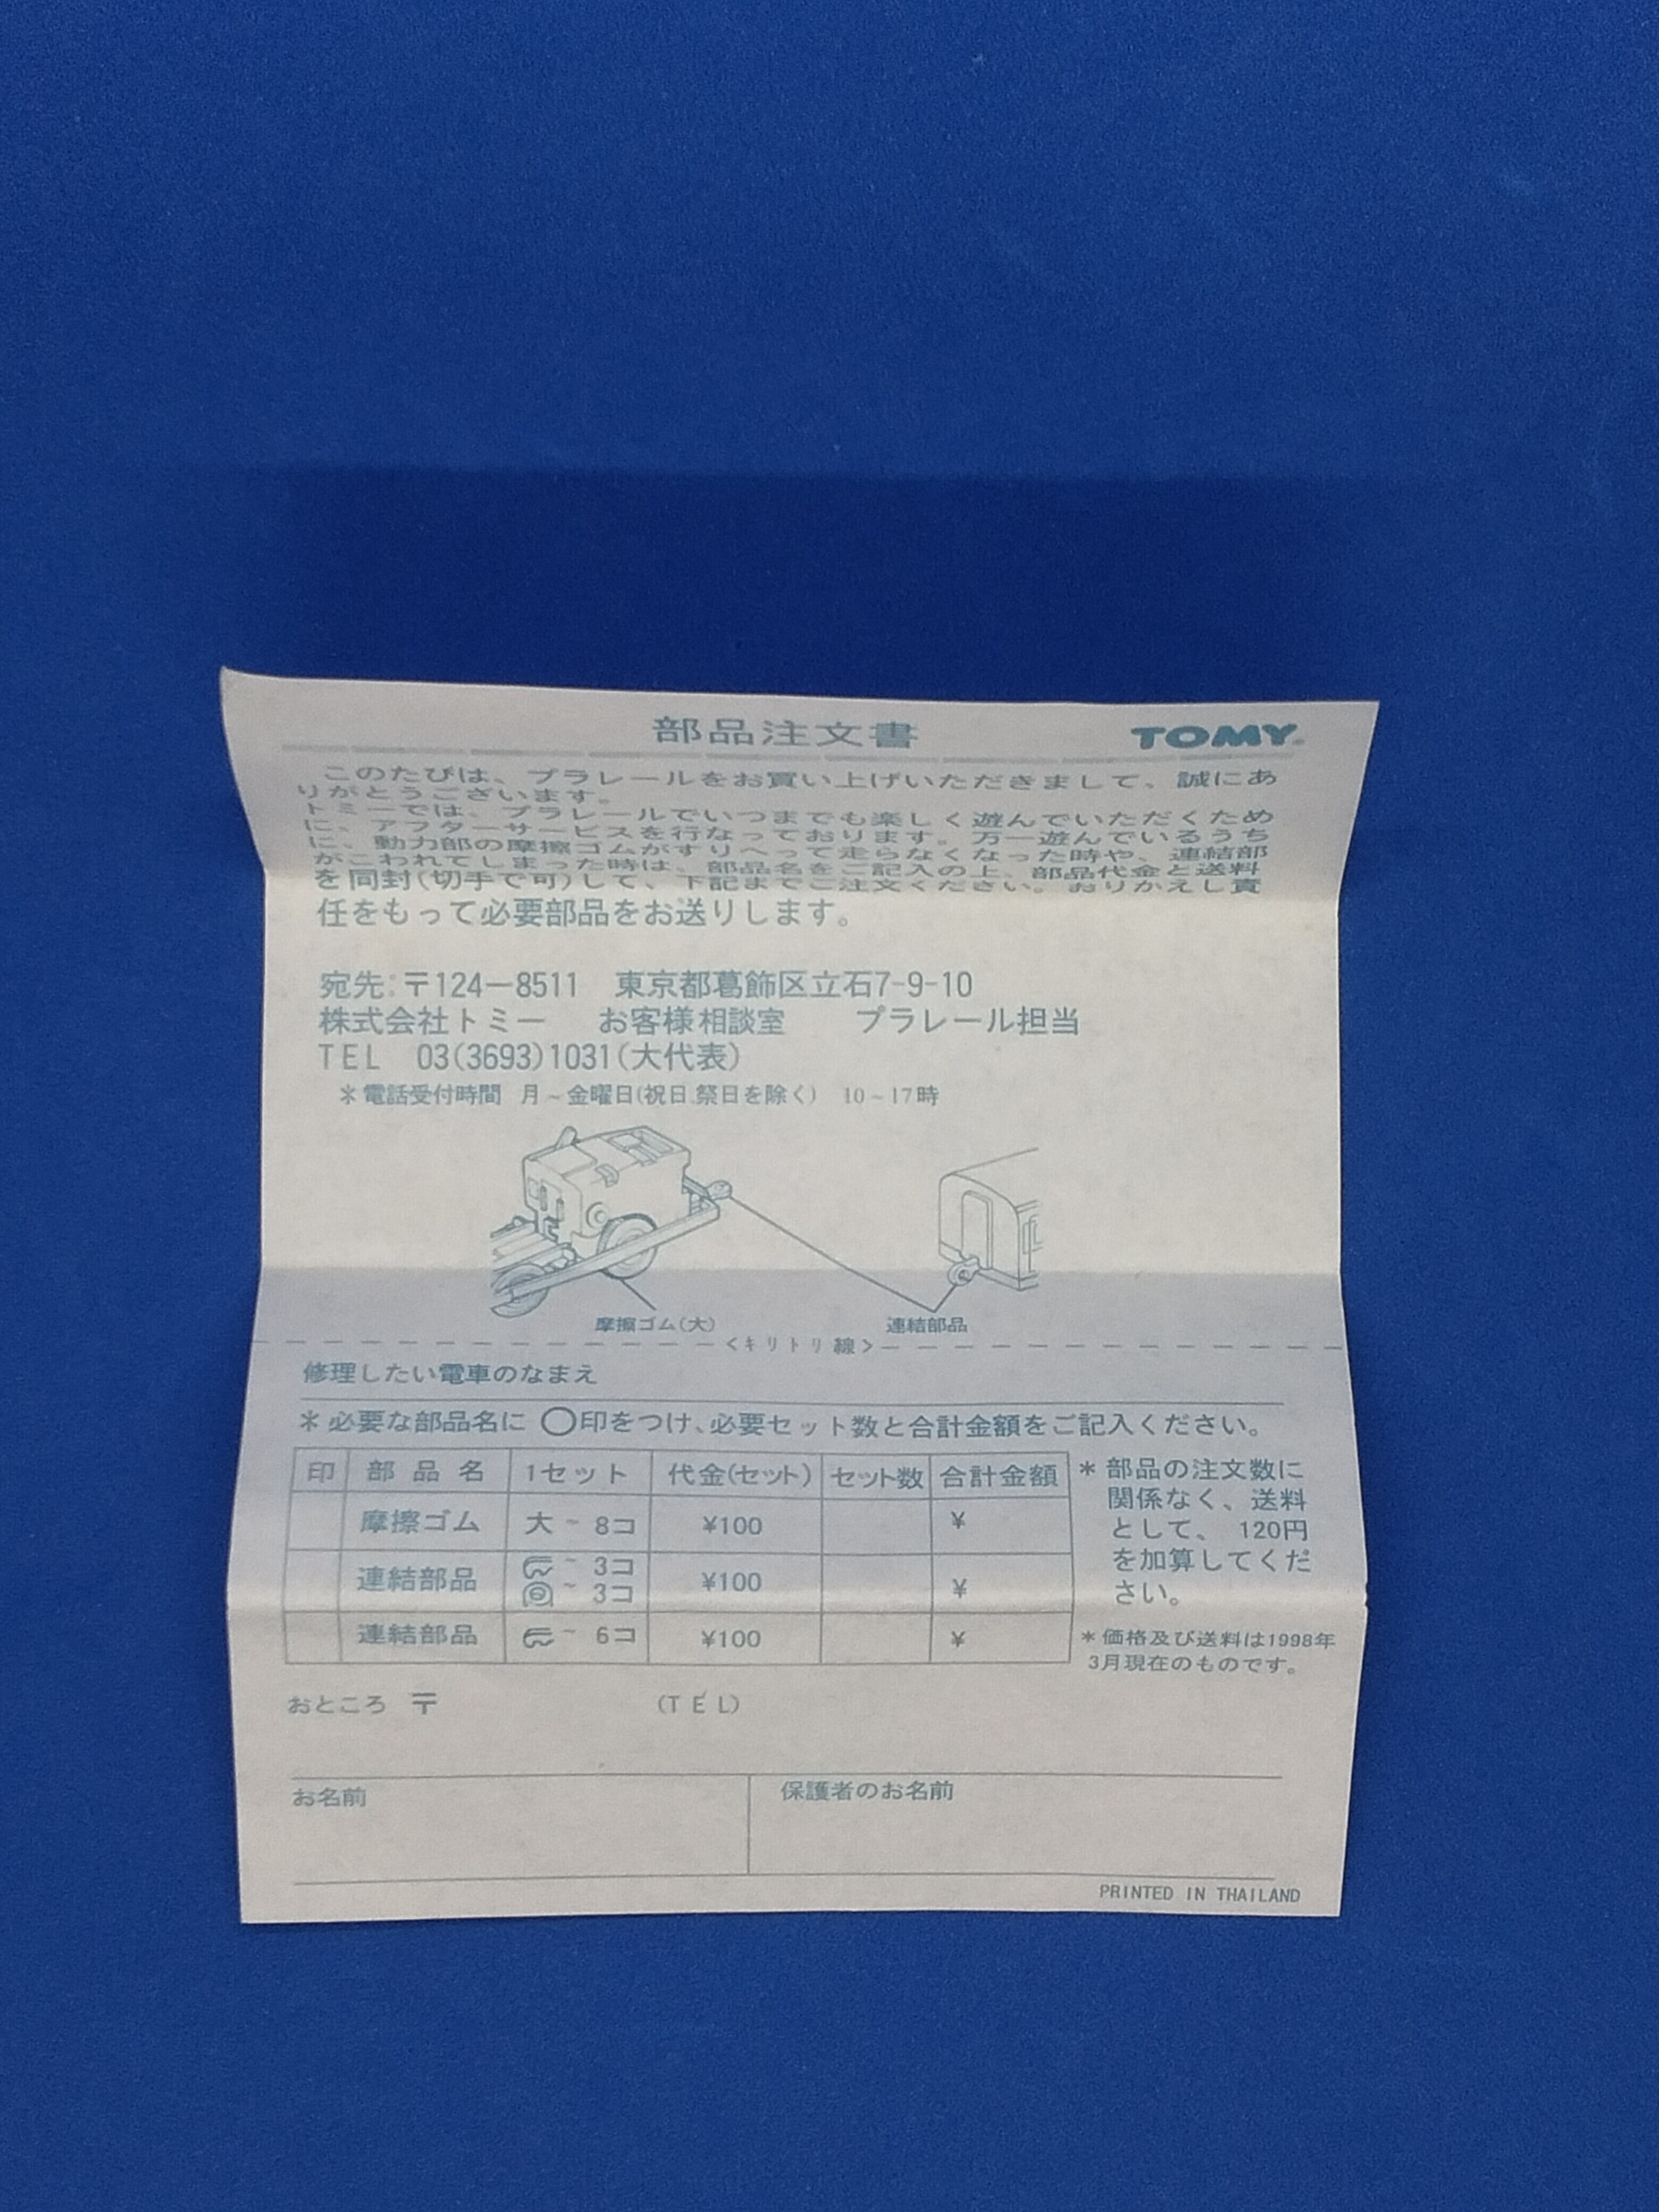 部品注文書
TOMY
このたびは、プラレールをお買い上げいただきまして、誠にあ
りがとうございます。
トミーでは、プラレールでいつまでも楽しく遊んでいただくため
に、アフターサービスを行なっております。万一遊んでいるうち
に、動力部の摩擦ゴムがすりへって走らなくなった時や、連結部
がこわれてしまった時は、部品名をご記入の上、部品代金と送料
を同封(切手で可)して、下記までご注文ください。おりかえし責
任をもって必要部品をお送りします。
宛先:〒124-8511 東京都葛飾区立石7-9-10
株式会社トミー お客様相談室 プラレール担当
TEL 03(3693)1031(大代表)
*電話受付時間 月~金曜日(祝日.祭日を除く) 10~17時
摩擦ゴム(大) 連結部品
<キリトリ線>
修理したい電車のなまえ
*必要な部品名に ○印をつけ、必要セット数と合計金額をご記入ください。
印 部品名 1セット 代金(セット) セット数 合計金額
摩擦ゴム 大~8コ ¥100 ¥
連結部品 ~3コ ~3コ ¥100 ¥
連結部品 ~6コ ¥100 ¥
*部品の注文数に
関係なく、送料
として、120円
を加算してくだ
さい。
*価格及び送料は1998年
3月現在のものです。
おところ 〒 (TEL)
お名前 保護者のお名前
PRINTED IN THAILAND